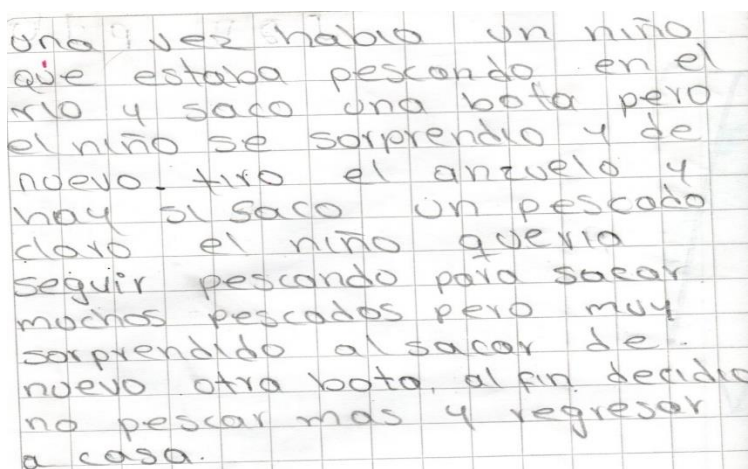 una vez habia un niño
que estaba pescando en el
rio y saco una bota pero
el niño se sorprendio y de
nuevo. tiro el anzuelo y
hay si saco un pescado
claro el niño queria
seguir pescando para sacar
muchos pescados pero muy
sorprendido al sacar de.
nuevo otra bota, al fin decidio
no pescar mas y regresar
a casa.